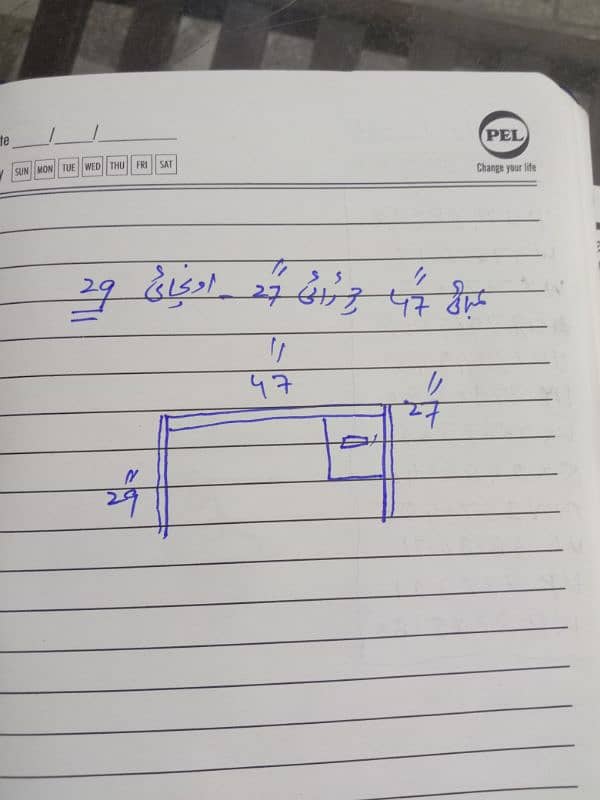 te ___/___/______
y SUN MON TUE WED THU FRI SAT
PEL
Change your life
لمبائی 47" چوڑائی 27" - اونچائی 29
47"
27"
29"